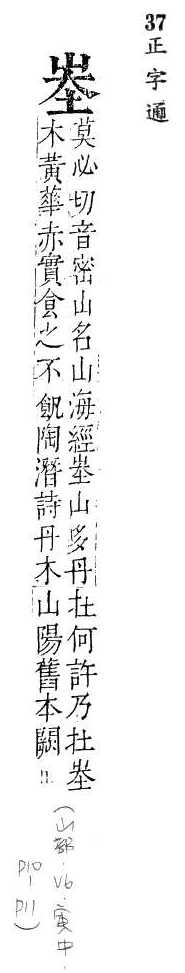 37正字通
峚
莫必切音密山名山海經峚山多丹扗何許乃扗峚
木黃華赤實食之不飢陶潛詩丹木山陽舊本闕
(山部.V6.寅中.
P10-P11)